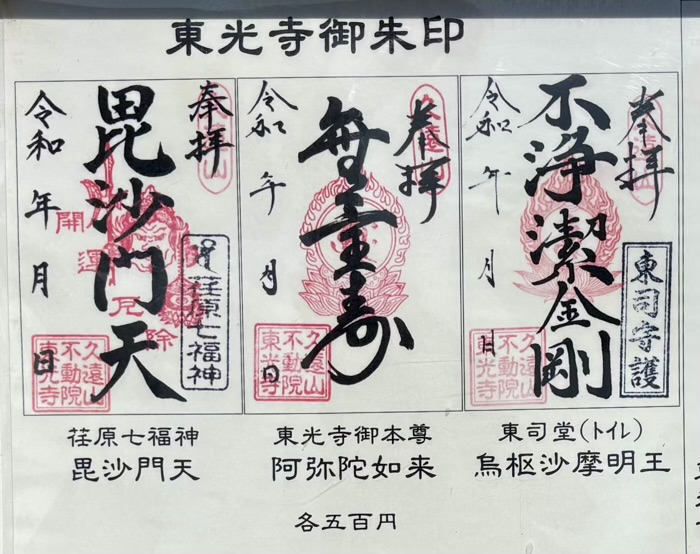 東光寺御朱印
奉拝
毘沙門天
令和 年 月 日
開運厄除
荏原七福神
久遠山
不動院
東光寺
奉拝
無量寿
令和 年 月 日
久遠山
不動院
東光寺
奉拝
不浄潔金剛
令和 年 月 日
東司守護
久遠山
不動院
東光寺
荏原七福神
毘沙門天
東光寺御本尊
阿弥陀如来
東司堂(トイレ)
烏枢沙摩明王
各五百円